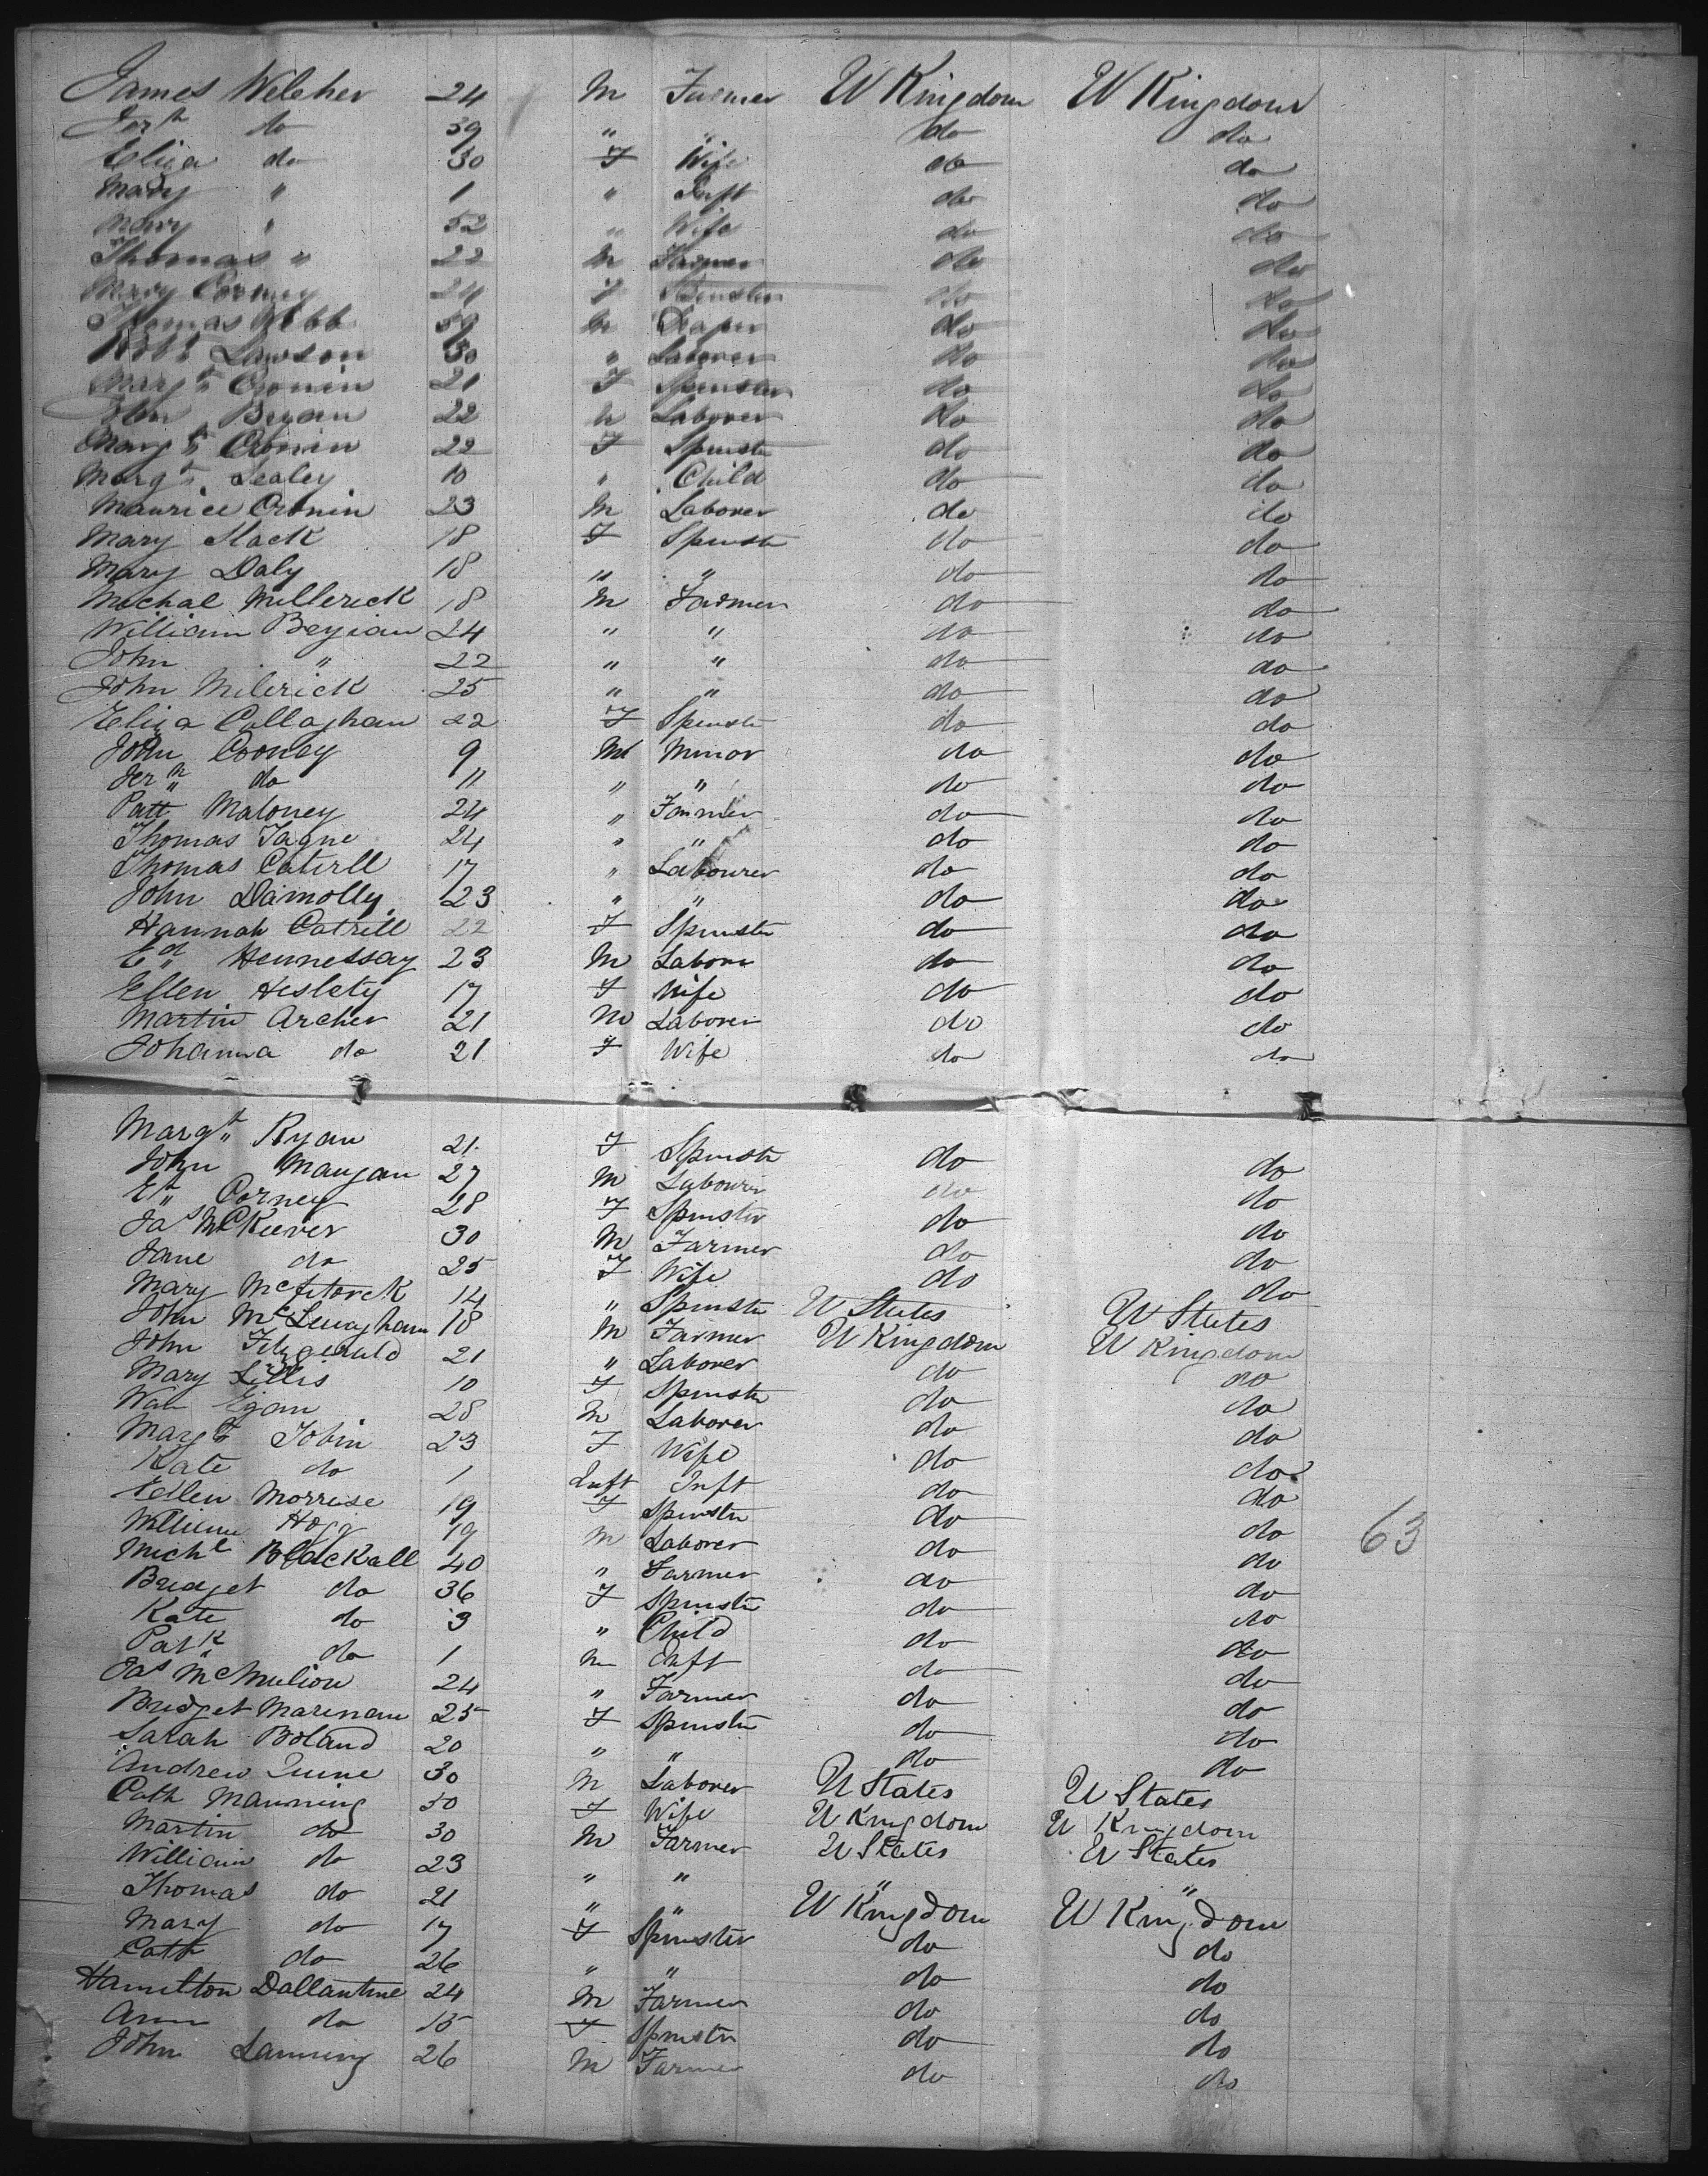 James Welcher 24 M Farmer U Kingdom U Kingdom
Jerh do 39 " " do do
Eliza do 30 F Wife do do
Mary " 1 " Inft do do
Mary " 52 " Wife do do
Thomas " 22 M Farmer do do
Mary Corney 24 F Spinster do do
Thomas Webb 39 M Draper do do
Robt Lawson 30 " Laborer do do
Margt Cronin 21 F Spinster do do
John Bryan 22 M Laborer do do
Margt Cronin 22 F Spinstr do do
Margt Sealey 10 " Child do do
Maurice Cronin 23 M Laborer do do
Mary Slack 18 F Spinstr do do
Mary Daly 18 " " do do
Michal Millerick 18 M Farmer do do
William Beyian 24 " " do do
John " 22 " " do do
John Milerick 25 " " do do
Eliza Collaghan 22 F Spinstr do do
John Cooney 9 M Minor do do
Jerh do 11 " " do do
Patt Maloney 24 " Farmer do do
Thomas Tagne 24 " " do do
Thomas Catrell 17 " Labourer do do
John Damolly 23 " " do do
Hannah Catrell 22 F Spinster do do
Ed Hennessay 23 M Labore do do
Ellen Heslety 17 F Wife do do
Martin Archer 21 M Laborer do do
Johanna do 21 F Wife do do
Margt Ryan 21 F Spinstr do do
John Mangan 27 M Labourer do do
Et Corney 28 F Spinster do do
Jas McKeever 30 M Farmer do do
Jane do 25 F Wife do do
Mary 14 " Spinstr U States U States
John 18 M Farmer U Kingdom U Kingdom
John Fitzgerald 21 " Laborer do do
Mary Lillis 10 F Spinstr do do
Wm Egan 28 M Laborer do do
Margt Tobin 23 F Wife do do
Kate do 1 Inft Inft do do
Ellen Morrise 19 F Spinster do do
William Hogg 19 M Laborer do do
Michl Blackall 40 " Farmer do do
Bridget do 36 F Spinstr do do
Kate do 3 " Child do do
Patk do 1 M Inft do do
Jas McMulion 24 " Farmer do do
Bridget Marinane 25 F Spinstr do do
Sarah Boland 20 " " do do
Andrew Quine 30 M Laborer U States U States
Cath Manning 50 F Wife U Kingdom U Kingdom
Martin do 30 M Farmer U States U States
William do 23 " " " "
Thomas do 21 " " U Kingdom U Kingdom
Mary do 17 F Spinster do do
Cath do 26 " " do do
Hamilton Dallantine 24 M Farmer do do
Ann do 15 F Spinstr do do
John Lanning 26 M Farmer do do
63